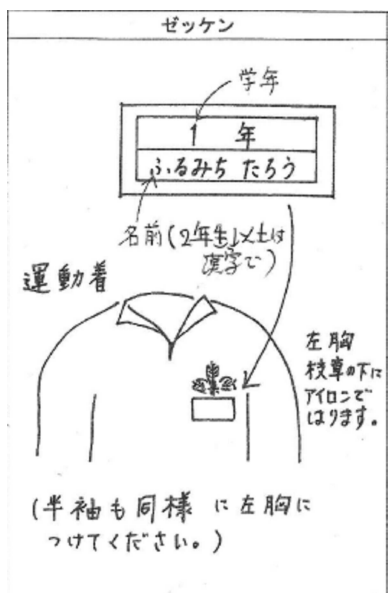 ゼッケン
学年
1 年
ふるみち たろう
名前(2年生以上は
漢字で)
運動着
左胸
校章の下に
アイロンで
はります。
(半袖も同様に左胸に
つけてください。)